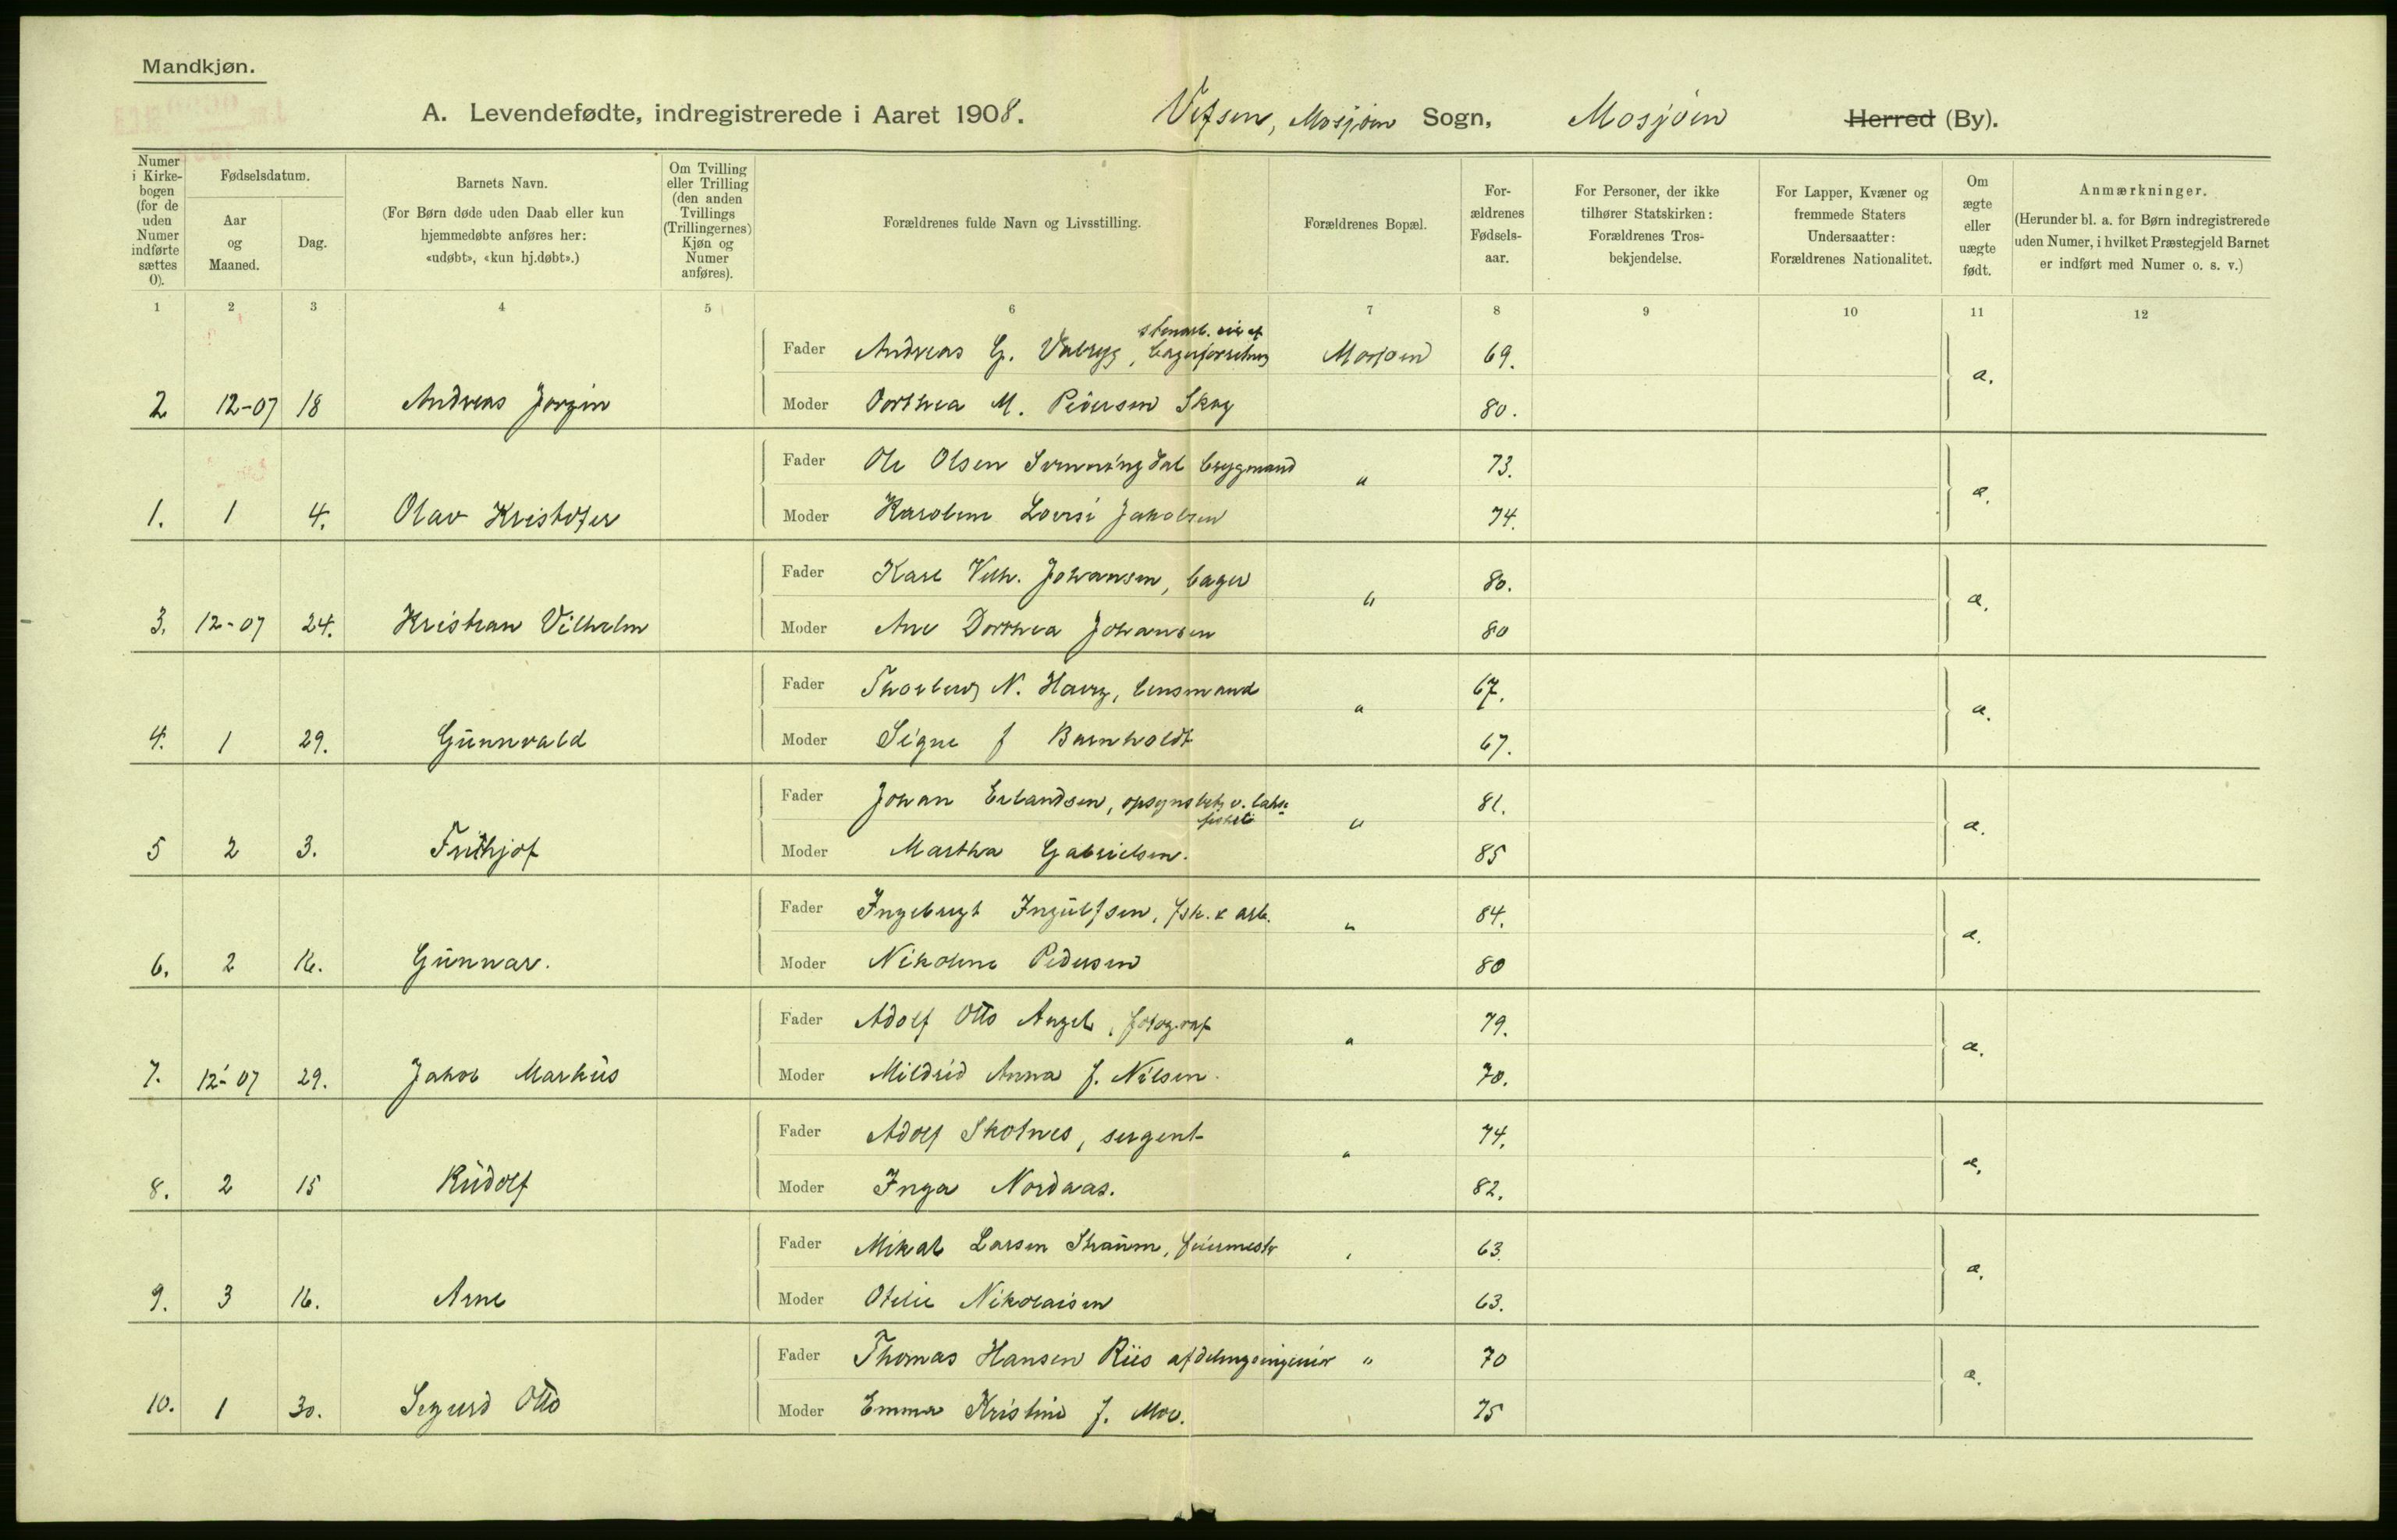 Mandkjøn.
A. Levendefødte, indregistrerede i Aaret 1908. Vefsen, Mosjøen Sogn, Mosjøen Herred (By).
Numer i Kirkebogen (for de uden Numer indførte sættes 0).
Fødselsdatum.
Aar og Maaned.
Dag.
Barnets Navn.
(For Børn døde uden Daab eller kun hjemmedøbte anføres her: «udøbt», «kun hj.døbt».)
Om Tvilling eller Trilling (den anden Tvillings (Trillingernes) Kjøn og Numer anføres).
Forældrenes fulde Navn og Livsstilling.
Forældrenes Bopæl.
Forældrenes Fødselsaar.
For Personer, der ikke tilhører Statskirken: Forældrenes Trosbekjendelse.
For Lapper, Kvæner og fremmede Staters Undersaatter: Forældrenes Nationalitet.
Om ægte eller uægte født.
Anmærkninger.
(Herunder bl. a. for Børn indregistrerede uden Numer, i hvilket Præstegjeld Barnet er indført med Numer o. s. v.)
1 2 3 4 5 6 7 8 9 10 11 12
Fader Andreas G. Mosjøen 69.
2 12-07 18 Andreas Jørgen Moder Dorthea M. Pedersen Skog 80. æ.
Fader Ole Olsen Svenningdal brygmand " 73.
1. 1 4. Olav Kristofer Moder Karoline Lovise Jakobsen 74. æ.
Fader Karl Vilh. Johansen, bager " 80.
3. 12-07 24. Kristian Vilhelm Moder Ane Dorthea Johansen 80 æ.
Fader Thorberg N. Haug, lensmand " 67.
4. 1 29. Gunnvald Moder Signe f Barnholdt 67. æ.
Fader Johan Erlandsen, opsynsbetj. v. lakse- fiskeri " 81.
5 2 3. Frithjof Moder Martha Gabrielsen. 85 æ.
Fader Ingebrigt Ingulfsen, fsk. & arb. " 84.
6. 2 16. Gunnar. Moder Nikoline Pedersen 80 æ.
Fader Adolf Otto Angel, fotograf " 79.
7. 12-07 29. Jakob Markus Moder Mildrid Anna f. Nilsen. 70. æ.
Fader Adolf Skotnes, sergent " 74.
8. 2 15 Rudolf Moder Inga Nordaas. 82. æ.
Fader Mikal Larsen Straum, feiermestr " 63.
9. 3 16. Arne Moder Otelie Nikolaisen 63. æ.
Fader Thomas Hansen Riis afdelingsingeniør " 70
10. 1 30. Sigurd Otto Moder Emma Kristine f. Moe. 75 æ.